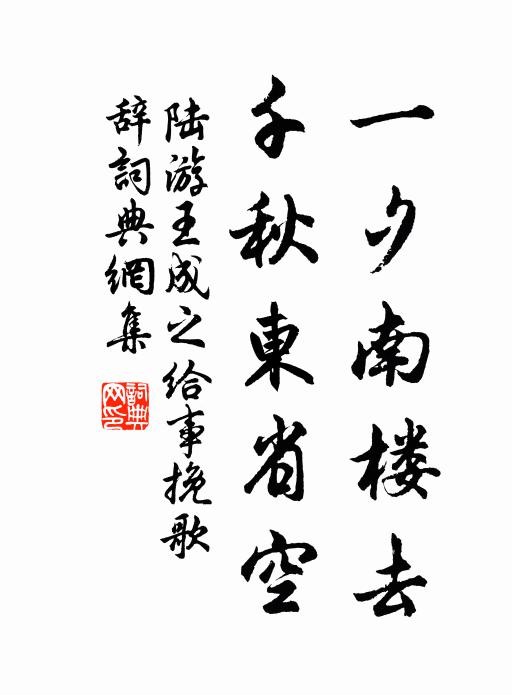 一夕南楼去
千秋東省空
陆游王成之给事挽歌
辞詞典網集
詞典网印